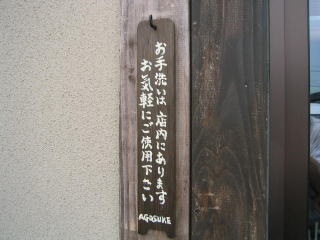 お手洗いは 店内にあります
お気軽にご使用下さい
AGOSUKE